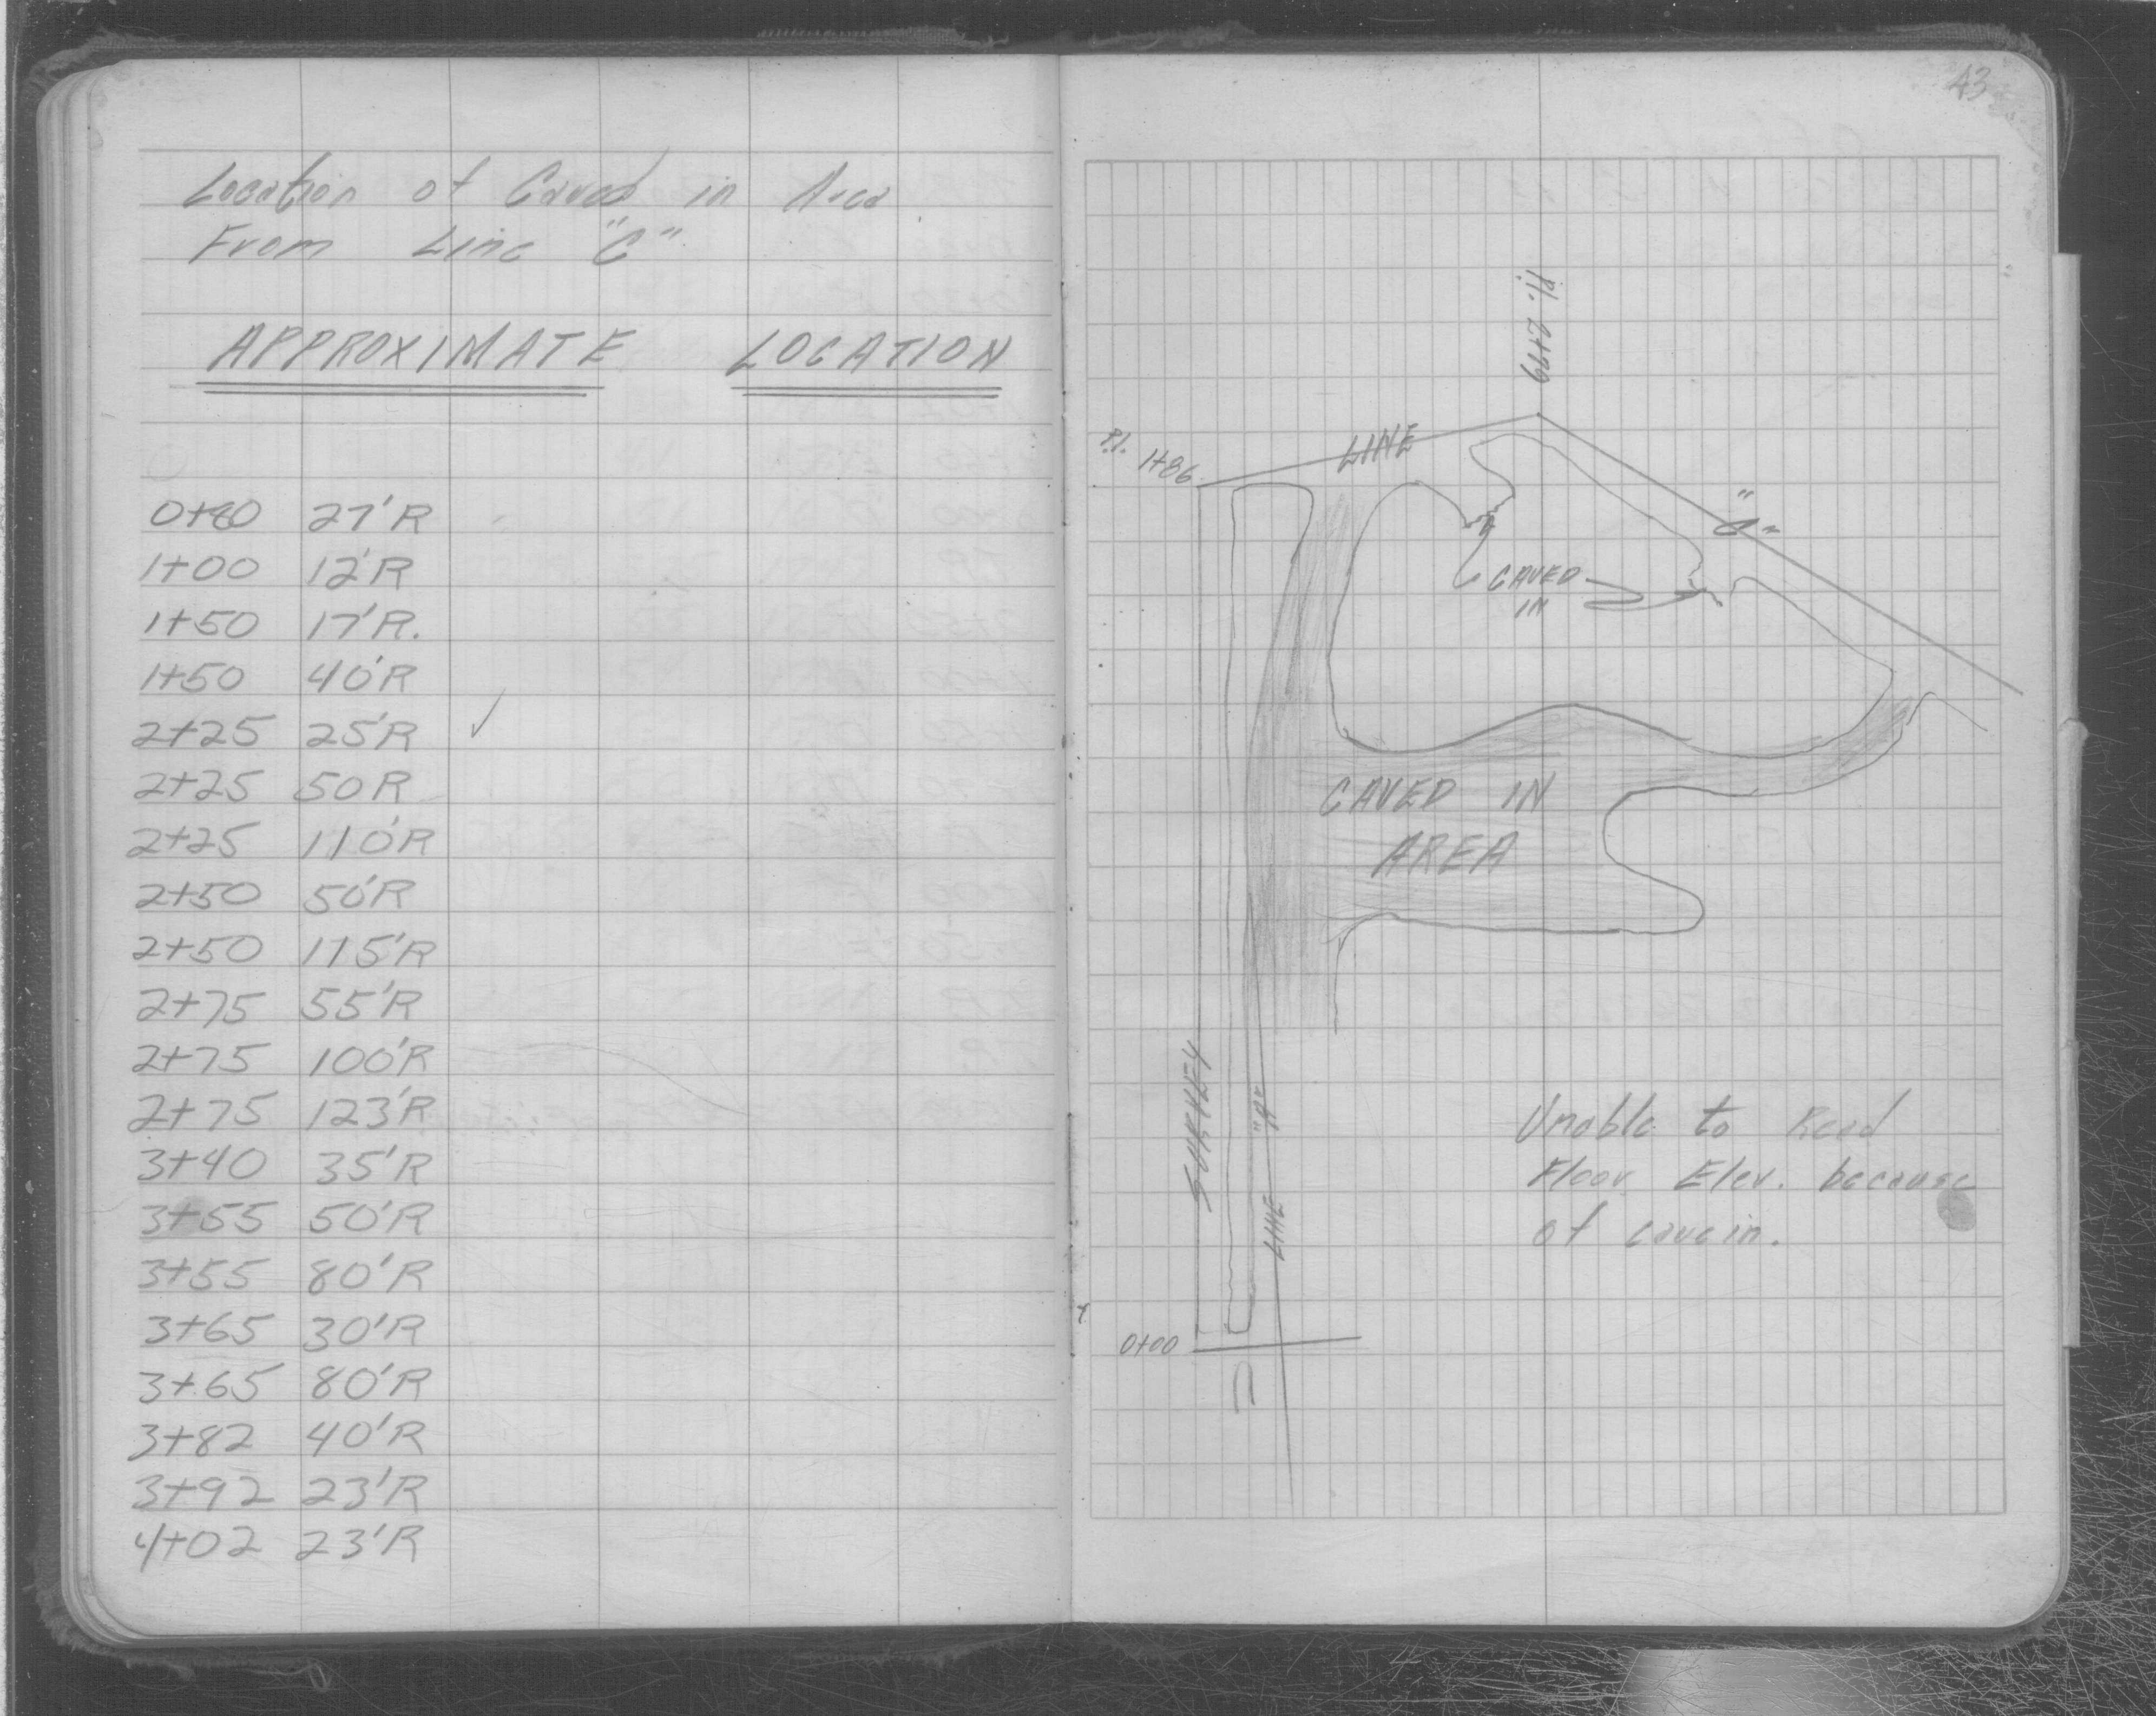 Location of Caved in Area
From Line "C"
APPROXIMATE LOCATION
0+80 27'R
1+00 12'R
1+50 17'R.
1+50 40'R
2+25 25'R ✓
2+25 50R
2+25 110'R
2+50 50'R
2+50 115'R
2+75 55'R
2+75 100'R
2+75 123'R
3+40 35'R
3+55 50'R
3+55 80'R
3+65 30'R
3+65 80'R
3+82 40'R
3+92 23'R
4+02 23'R
43
P.I. 2+99
P.I. 1+86
LINE
"C"
CAVED
IN
CAVED IN
AREA
SURVEY
LINE "A"
Unable to Read
Floor Elev. because
of cavein.
0+00